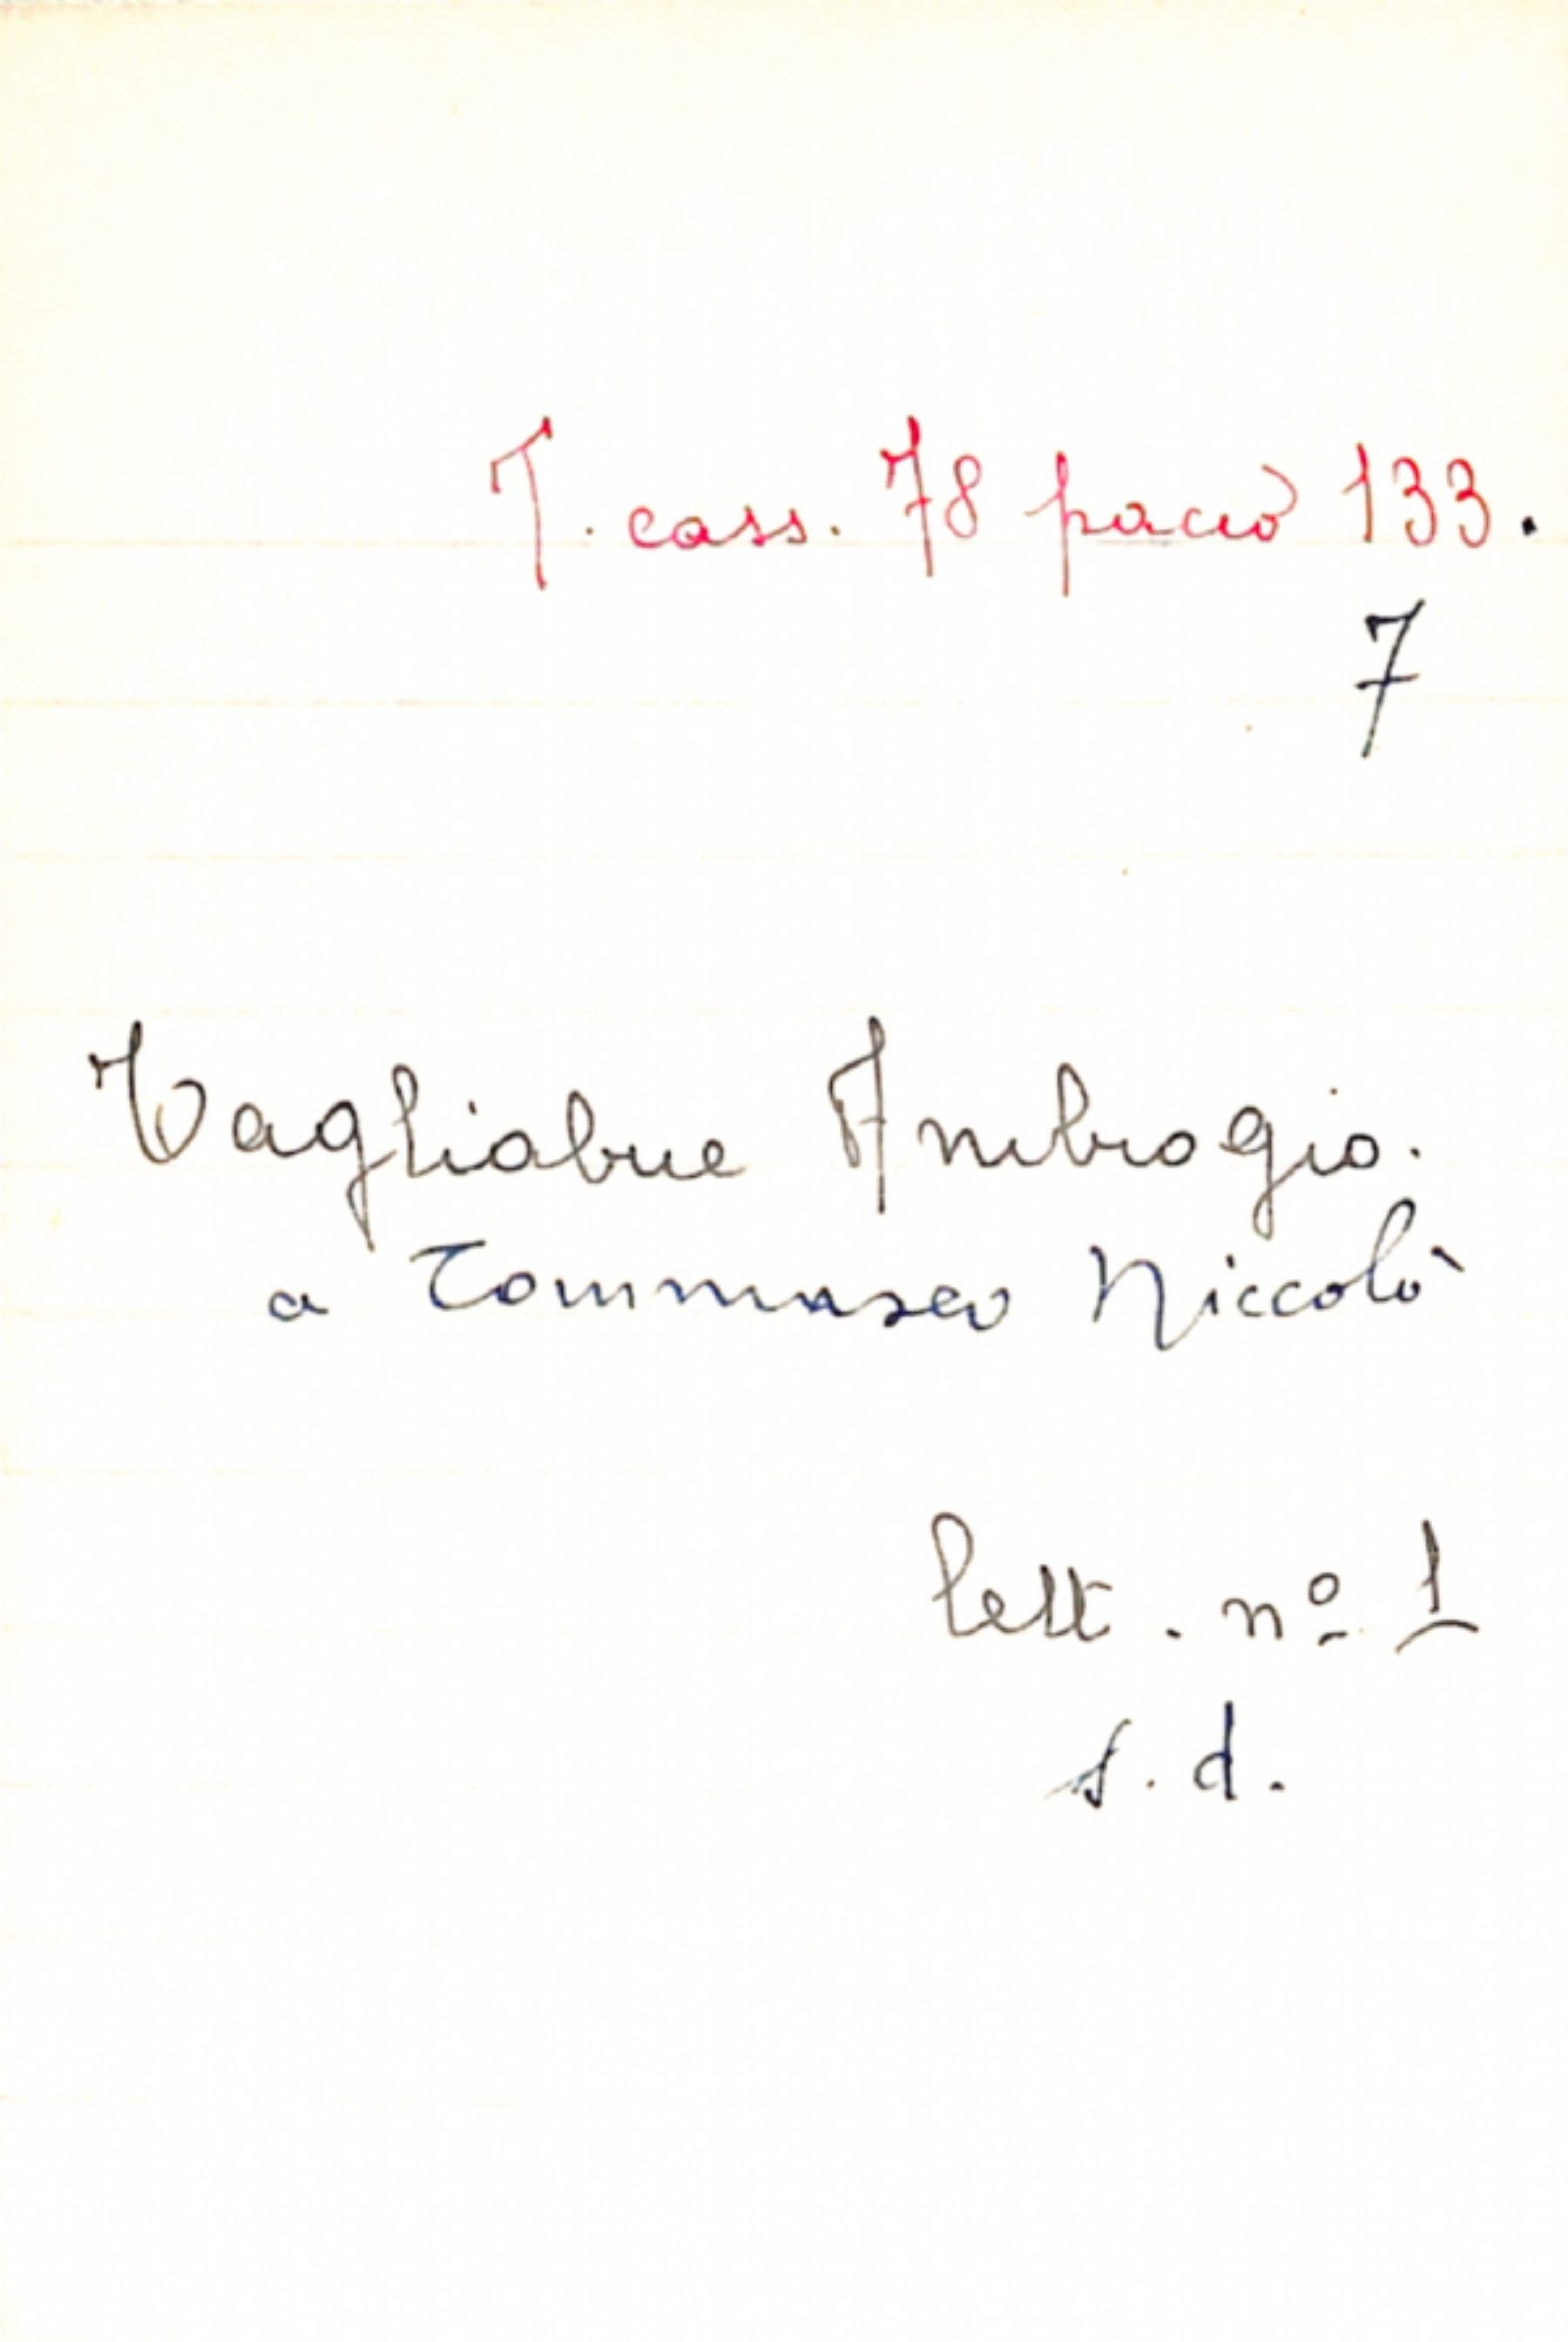 T. cass. 78 pacco 133.
7
Tagliabue Ambrogio.
a Tommaseo Niccolò
lett. nº 1
s. d.